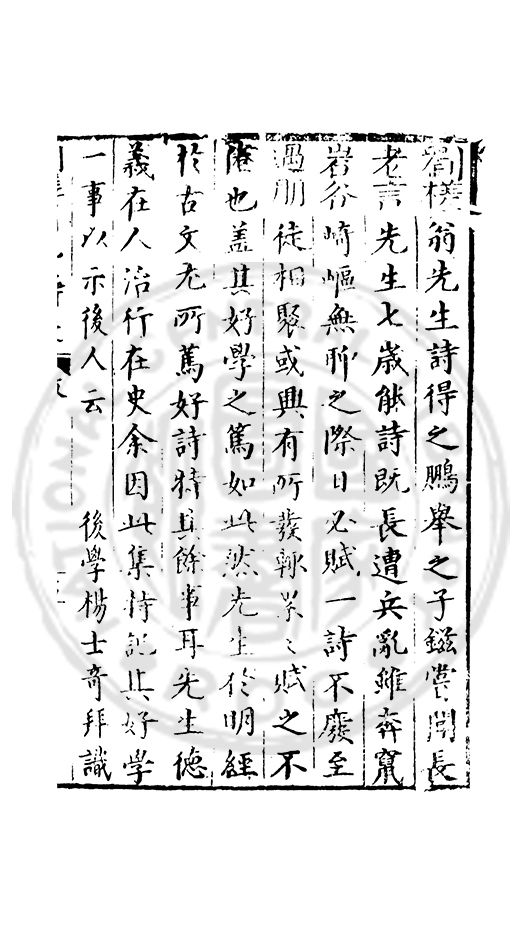 劉槎翁先生詩得之鵬舉之子鎡嘗聞長
老言先生七歲能詩既長遭兵亂雖奔竄
岩谷崎嶇無聊之際日必賦一詩不廢至
遇朋徒相聚或興有所發輒累〻賦之不
倦也蓋其好學之篤如此然先生於明經
於古文尤所篤好詩特其餘事耳先生德
義在人治行在史余因此集特記其好學
一事以示後人云　後學楊士奇拜識